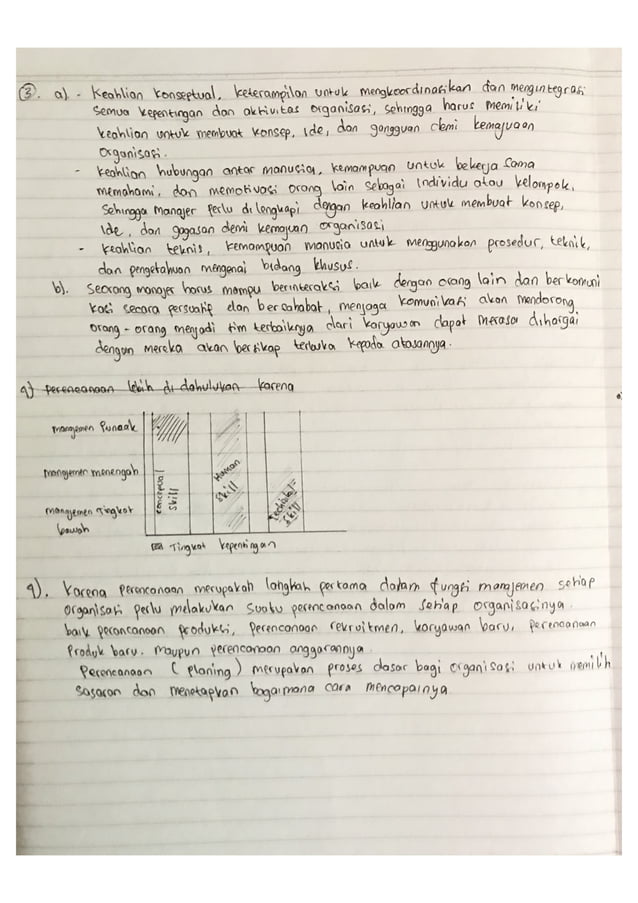 3. a) - Keahlian Konseptual, keterampilan untuk mengkoordinasikan dan mengintegrasi
semua kepentingan dan aktivitas organisasi, sehingga harus memiliki
keahlian untuk membuat konsep, ide, dan gangguan demi kemajuan
organisasi.
- keahlian hubungan antar manusia, kemampuan untuk bekerja sama
memahami, dan memotivasi orang lain sebagai individu atau kelompok,
sehingga manajer perlu dilengkapi dengan keahlian untuk membuat konsep,
ide, dan gagasan demi kemajuan organisasi
- keahlian teknis, kemampuan manusia untuk menggunakan prosedur, teknik,
dan pengetahuan mengenai bidang khusus.
b). Seorang manajer harus mampu berinteraksi baik dengan orang lain dan berkomuni
kasi secara persuatif dan bersahabat, menjaga komunikasi akan mendorong
orang-orang menjadi tim terbaiknya dari karyawan dapat merasa dihargai
dengan mereka akan bersikap terbuka kepada atasannya.
4) perencanaan lebih di dahulukan karena
manajemen Puncak
manajemen menengah
manajemen Tingkat
bawah
conceptual
skill
Human
skill
skill
Tingkat kepentingan
4). Karena perencanaan merupakah langkah pertama dalam fungsi manajemen setiap
organisasi perlu melakukan suatu perencanaan dalam setiap organisasinya.
baik perancanaan produksi, perencanaan rekruitmen, karyawan baru, perencanaan
Produk baru. maupun perencanaan anggarannya.
Perencanaan (planing) merupakan proses dasar bagi organisasi untuk memilih
sasaran dan menetapkan bagaimana cara mencapainya